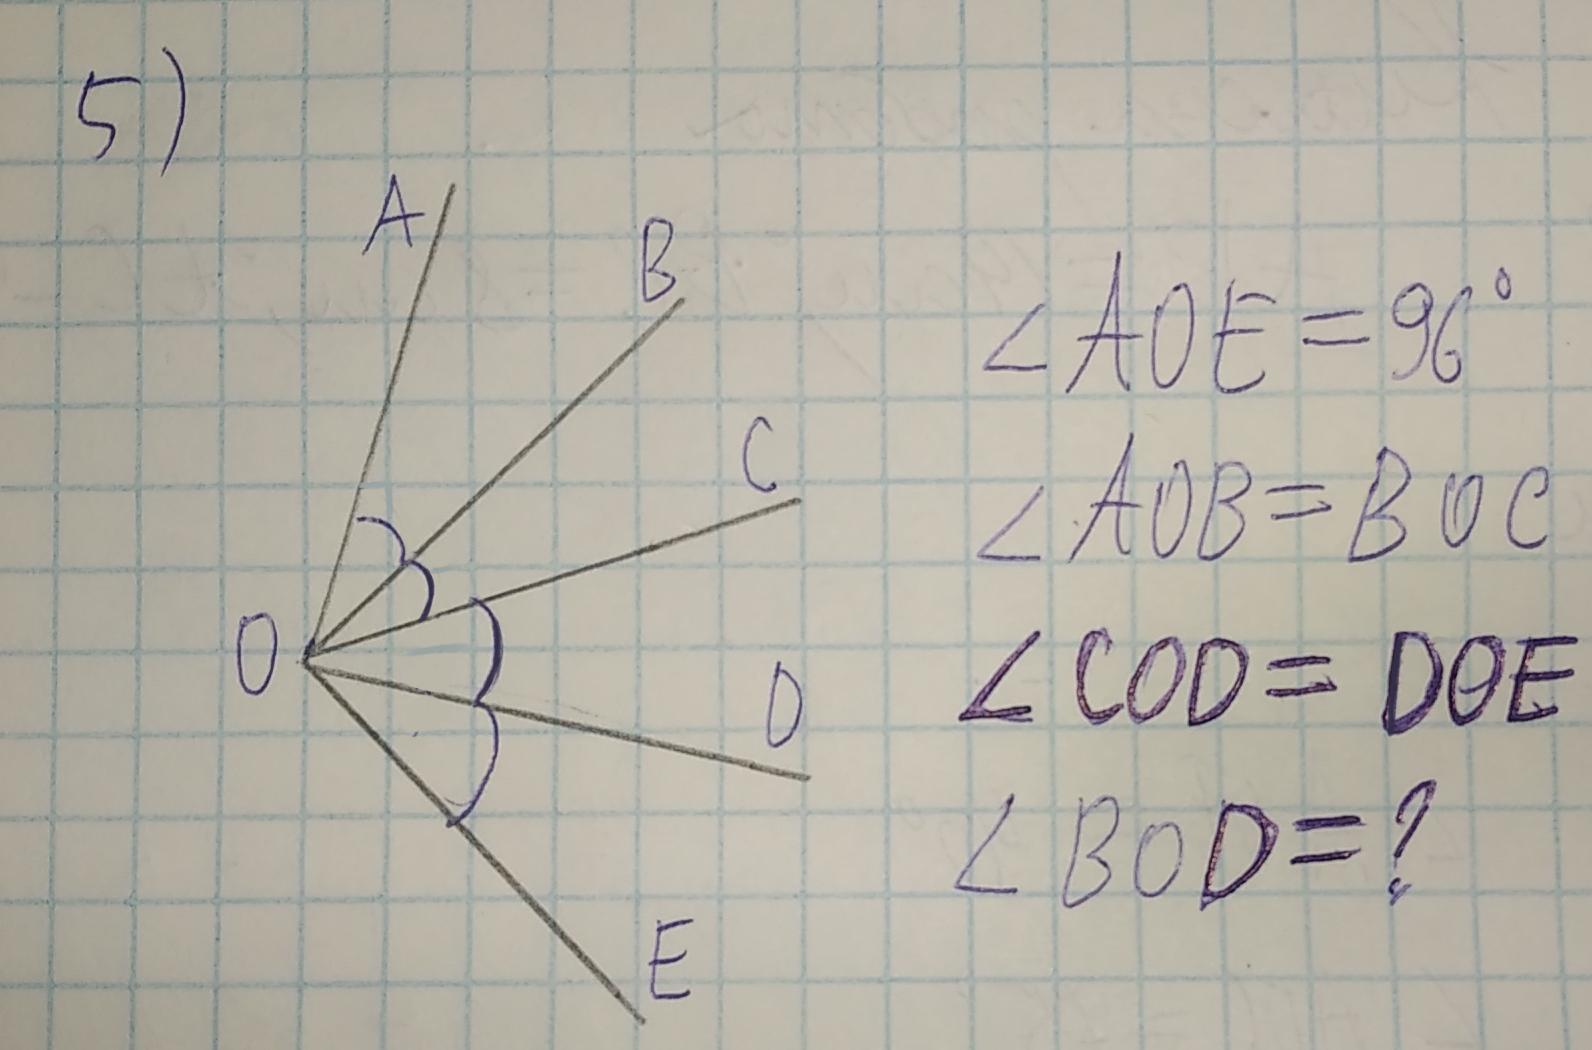 5)
A
B
C
O
D
E
∠AOE=96°
∠AOB=BOC
∠COD=DOE
∠BOD=?